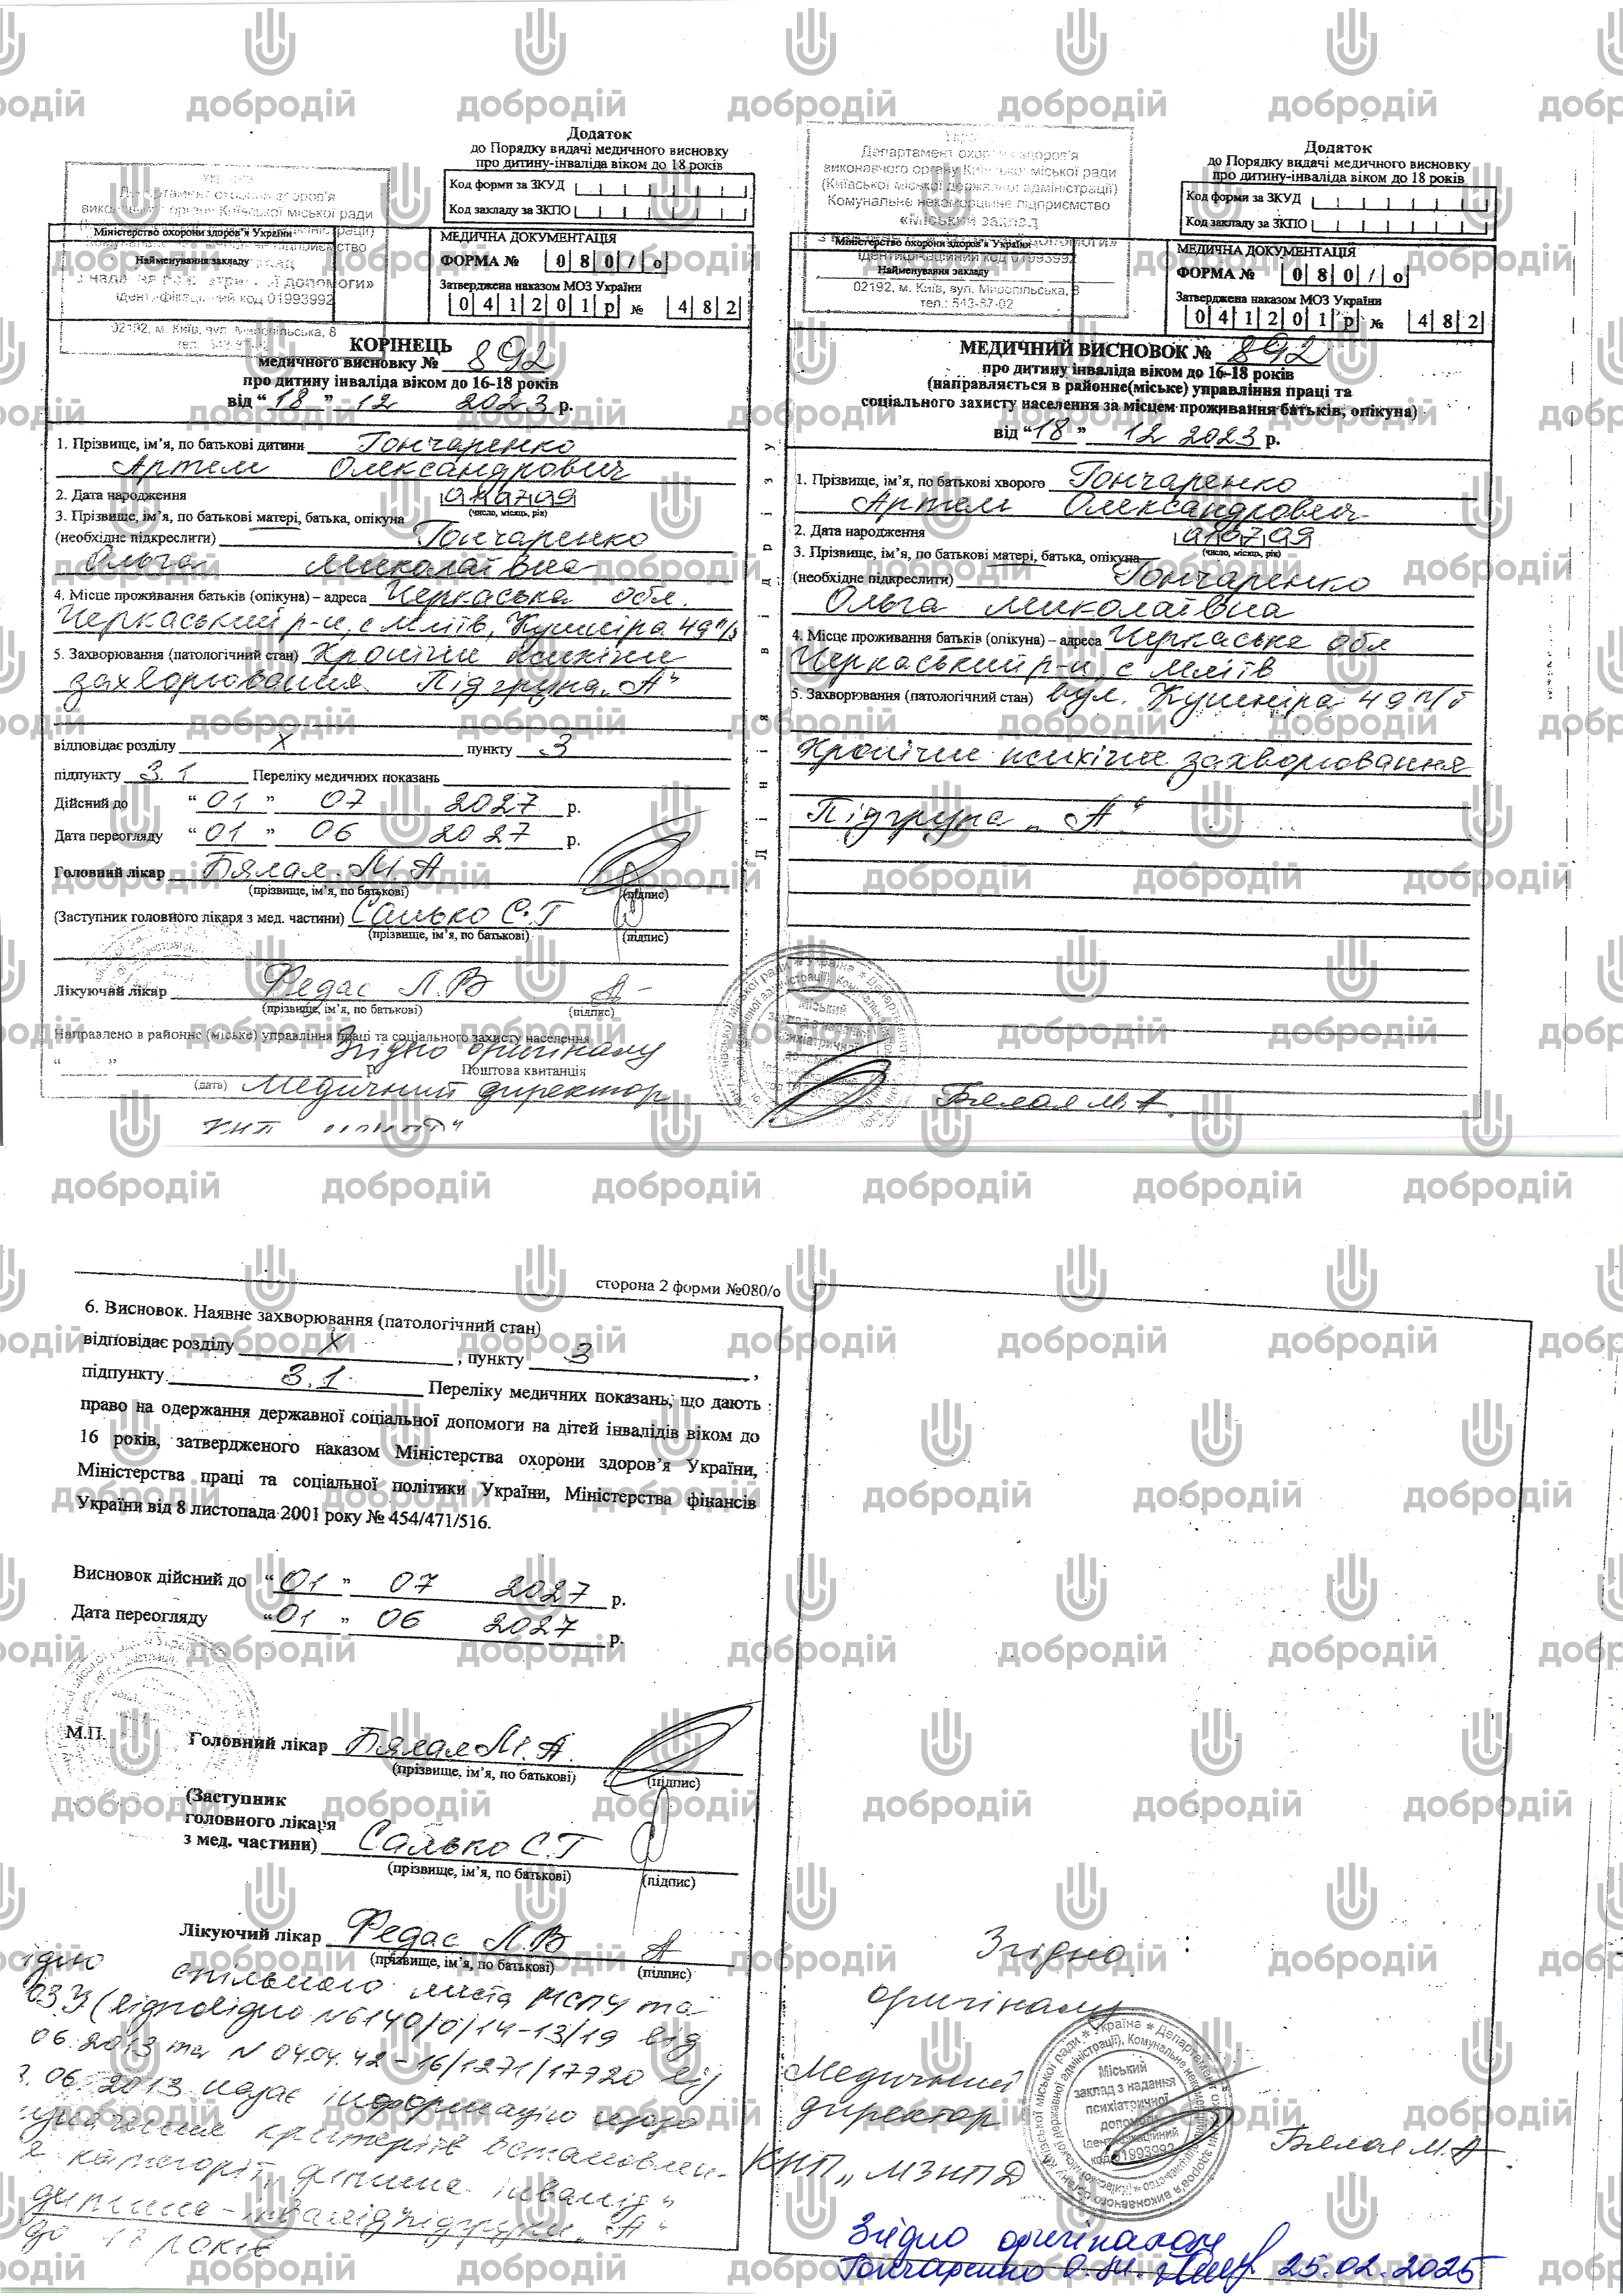 Додаток
до Порядку видачі медичного висновку
про дитину-інваліда віком до 18 років
Код форми за ЗКУД
Код закладу за ЗКПО
Міністерство охорони здоров'я України
Найменування закладу
ідентифікаційний код 01993992
02192, м. Київ, вул. Миропільська, 8
МЕДИЧНА ДОКУМЕНТАЦІЯ
ФОРМА № 0 8 0 / о
Затверджена наказом МОЗ України
0 4 1 2 0 1 р № 4 8 2
КОРІНЕЦЬ
медичного висновку № 892
про дитину інваліда віком до 16-18 років
від “ 18 ” 12 2023 р.
1. Прізвище, ім’я, по батькові дитини Гончаренко
Артем Олександрович
2. Дата народження
(число, місяць, рік)
3. Прізвище, ім’я, по батькові матері, батька, опікуна
(необхідне підкреслити) Гончаренко
Ольга Миколаївна
4. Місце проживання батьків (опікуна) – адреса Черкаська обл.
Черкаський р-н, с Мліїв, Кушніра 49 п/б
5. Захворювання (патологічний стан) Хронічні психічні
захворювання Підгрупа „А“
відповідає розділу X пункту 3
підпункту 3.1 Переліку медичних показань
Дійсний до “ 01 ” 07 2027 р.
Дата переогляду “ 01 ” 06 2027 р.
Головний лікар Бялая М.А
(прізвище, ім’я, по батькові) (підпис)
(Заступник головного лікаря з мед. частини) Салько С.Г
(прізвище, ім’я, по батькові) (підпис)
Лікуючий лікар Федас Л.В
(прізвище, ім’я, по батькові) (підпис)
Направлено в районне (міське) управління праці та соціального захисту населення
Згідно оригіналу
“ ” р. Поштова квитанція
(дата) Медичний директор
Лінія відрізу
Департамент охорони здоров'я
виконавчого органу Київської міської ради
(Київської міської державної адміністрації)
Комунальне некомерційне підприємство
«Міський заклад
ідентифікаційний код 01993992
02192, м. Київ, вул. Миропільська, 8
тел.: 543-87-02
Додаток
до Порядку видачі медичного висновку
про дитину-інваліда віком до 18 років
Код форми за ЗКУД
Код закладу за ЗКПО
Міністерство охорони здоров'я України
Найменування закладу
МЕДИЧНА ДОКУМЕНТАЦІЯ
ФОРМА № 0 8 0 / о
Затверджена наказом МОЗ України
0 4 1 2 0 1 р № 4 8 2
МЕДИЧНИЙ ВИСНОВОК № 892
про дитину інваліда віком до 16-18 років
(направляється в районне(міське) управління праці та
соціального захисту населення за місцем проживання батьків, опікуна)
від “18” 12 2023 р.
1. Прізвище, ім’я, по батькові хворого Гончаренко
Артем Олександрович
2. Дата народження
(число, місяць, рік)
3. Прізвище, ім’я, по батькові матері, батька, опікуна
(необхідне підкреслити) Гончаренко
Ольга Миколаївна
4. Місце проживання батьків (опікуна) – адреса Черкаська обл
Черкаський р-н, с Мліїв
5. Захворювання (патологічний стан) вул. Кушніра 49 п/б
Хронічні психічні захворювання
Підгрупа „А“
Бялая М.А.
сторона 2 форми №080/о
6. Висновок. Наявне захворювання (патологічний стан)
відповідає розділу X , пункту 3 ,
підпункту 3.1 Переліку медичних показань, що дають
право на одержання державної соціальної допомоги на дітей інвалідів віком до
16 років, затвердженого наказом Міністерства охорони здоров’я України,
Міністерства праці та соціальної політики України, Міністерства фінансів
України від 8 листопада 2001 року № 454/471/516.
Висновок дійсний до “ 01 ” 07 2027 р.
Дата переогляду “ 01 ” 06 2027 р.
М.П.
Головний лікар Бялая М.А.
(прізвище, ім’я, по батькові) (підпис)
(Заступник
головного лікаря
з мед. частини) Салько С.Г
(прізвище, ім’я, по батькові) (підпис)
Лікуючий лікар Федас Л.В
(прізвище, ім’я, по батькові) (підпис)
ідно спільного листа МСПУ та
ОЗУ (відповідно №6140/0/14-13/19 від
06.2013 та N 04.04.42-16/1271/17920 від
.06.2013 надає інформацію щодо
критеріїв встановлен-
категорії „дитина інвалід“
дитина-інвалід підгрупи „А“
до 18 років
Згідно
оригіналу
Медичний
директор
КНП „МЗНПД
Міський
заклад з надання
психіатричної
допомоги
Ідентифікаційний
код 01993992
Бялая М.А
Згідно оригіналом
Гончаренко О.М. 25.02.2025
добродій